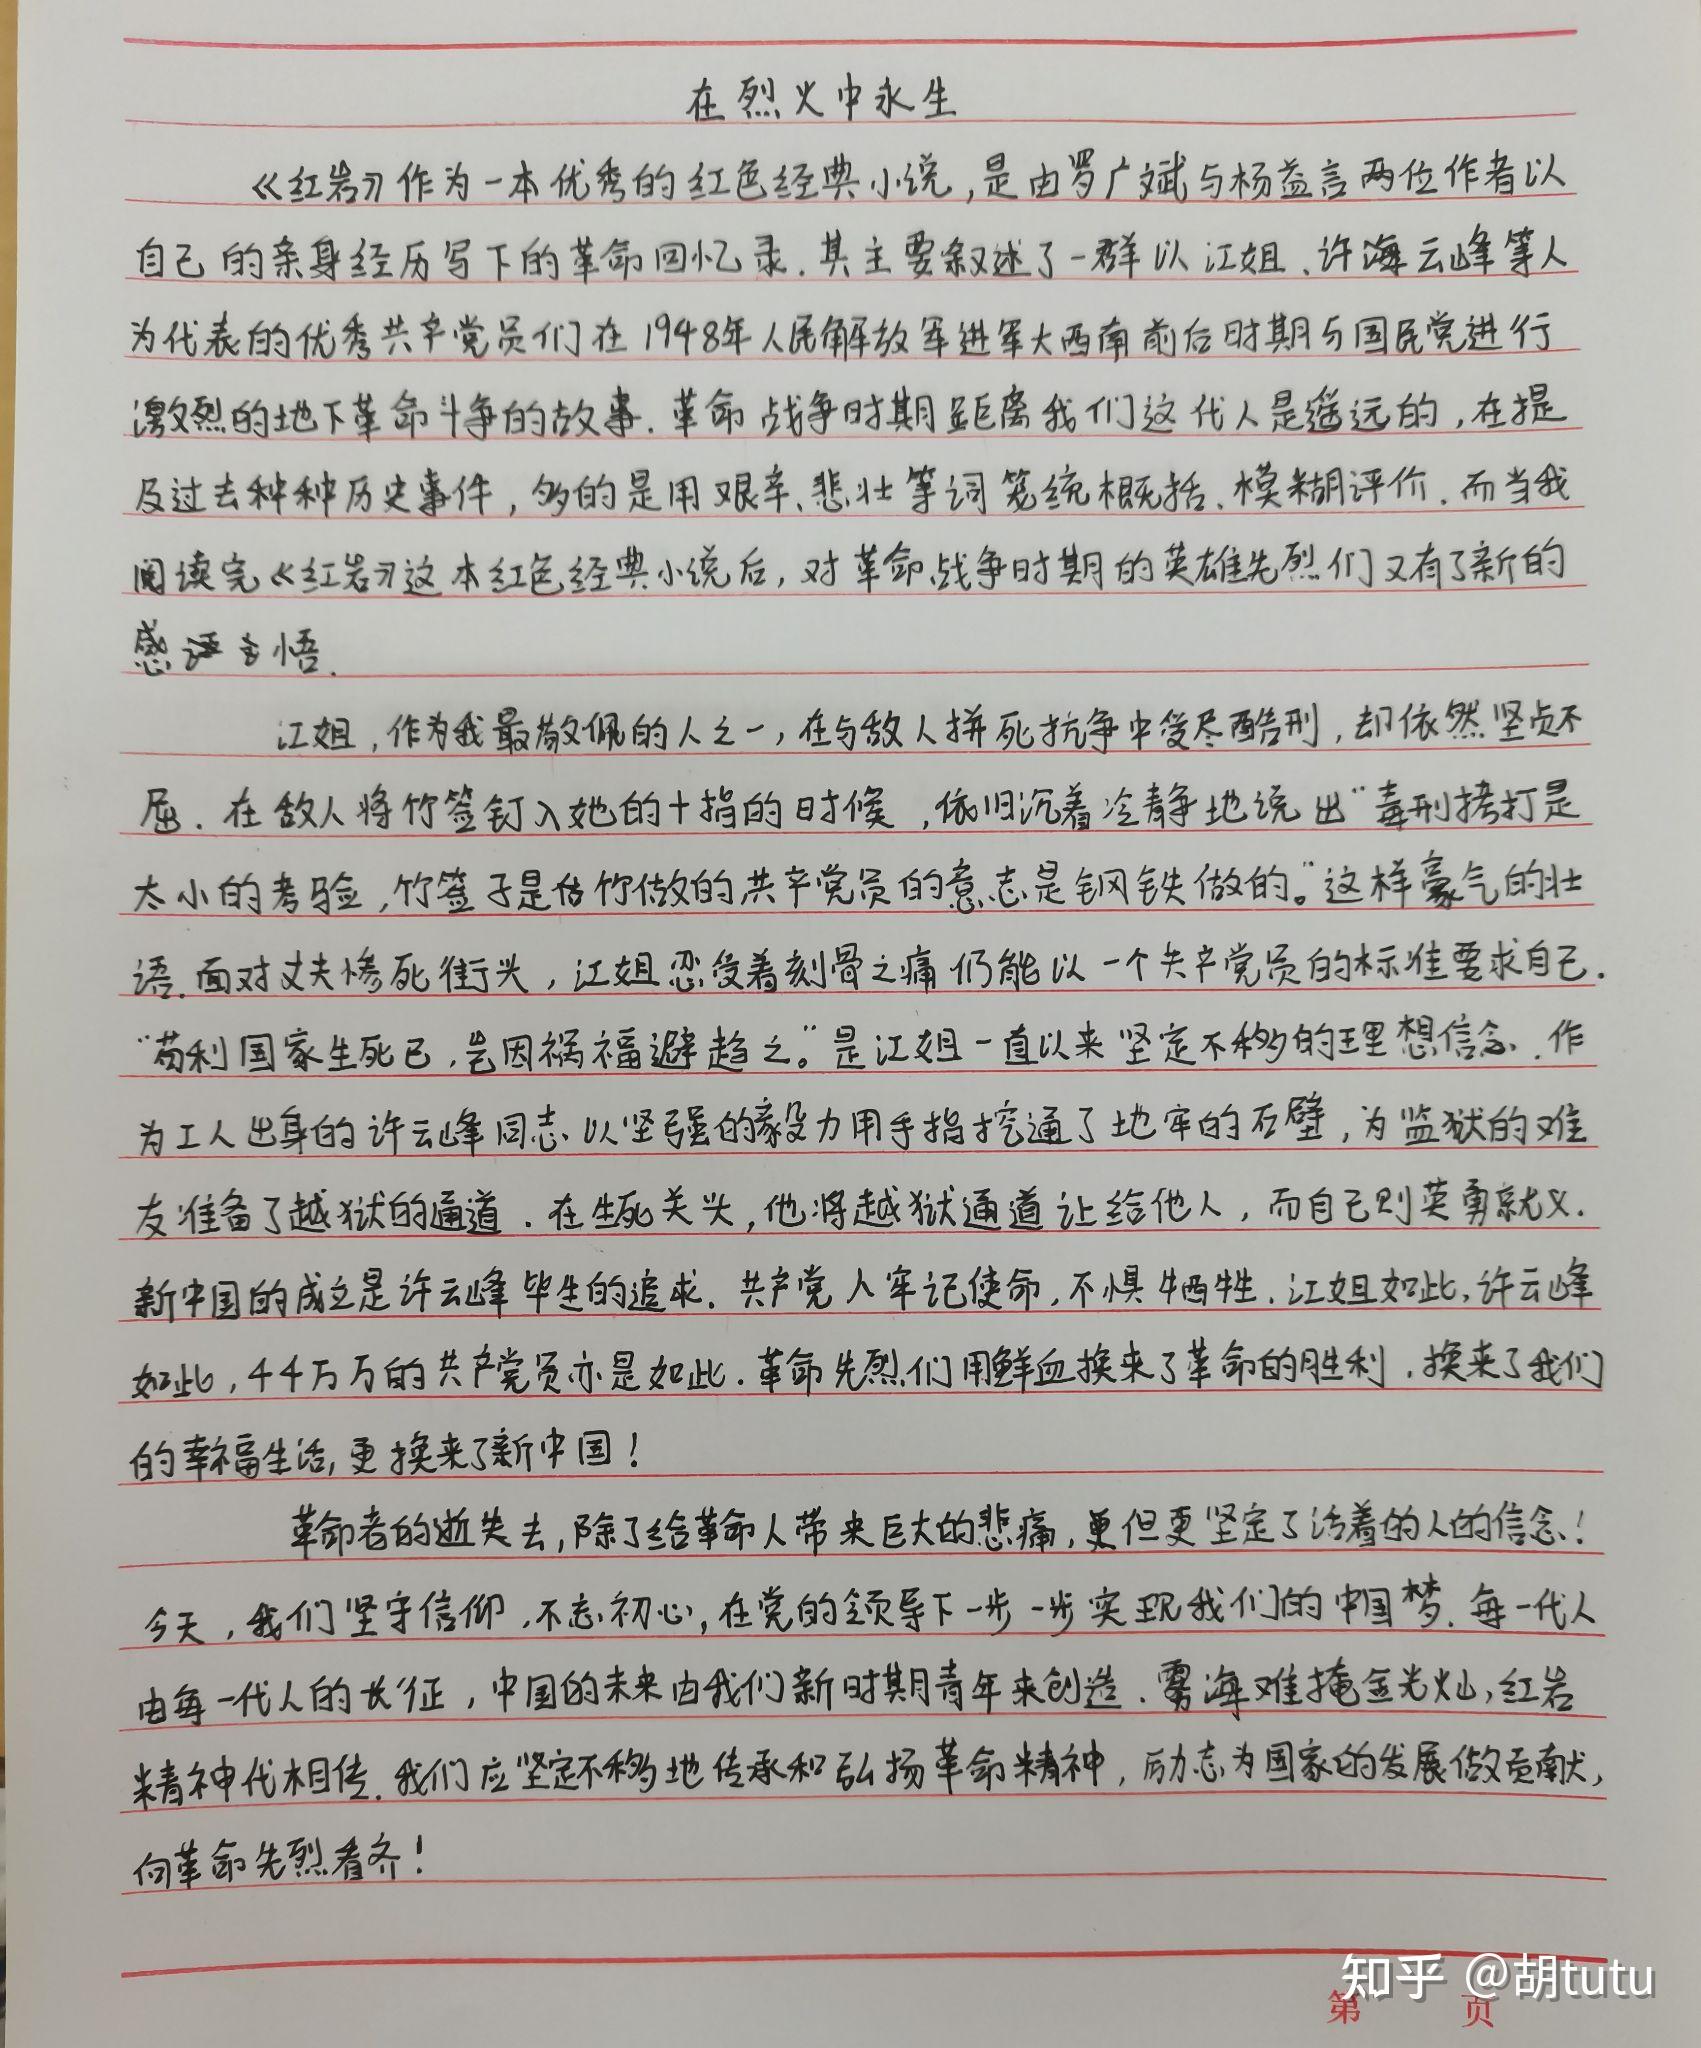 在烈火中永生
《红岩》作为一本优秀的红色经典小说，是由罗广斌与杨益言两位作者以
自己的亲身经历写下的革命回忆录．其主要叙述了一群以江姐、许海云峰等人
为代表的优秀共产党员们在1948年人民解放军进军大西南前后时期与国民党进行
激烈的地下革命斗争的故事．革命战争时期距离我们这代人是遥远的，在提
及过去种种历史事件，多的是用艰辛、悲壮等词笼统概括、模糊评价．而当我
阅读完《红岩》这本红色经典小说后，对革命战争时期的英雄先烈们又有了新的
感悟．
江姐，作为我最敬佩的人之一，在与敌人拼死抗争中受尽酷刑，却依然坚贞不
屈．在敌人将竹签钉入她的十指的时候，依旧沉着冷静地说出“毒刑拷打是
太小的考验，竹签子是估竹做的，共产党员的意志是钢铁做的。”这样豪气的壮
语．面对丈夫惨死街头，江姐忍受着刻骨之痛仍能以一个共产党员的标准要求自己．
“苟利国家生死已，岂因祸福避趋之。”是江姐一直以来坚定不移的理想信念．作
为工人出身的许云峰同志，以坚强的毅力用手指挖通了地牢的石壁，为监狱的难
友准备了越狱的通道．在生死关头，他将越狱通道让给他人，而自己则英勇就义．
新中国的成立是许云峰毕生的追求．共产党人牢记使命，不惧牺牲．江姐如此，许云峰
如此，44万万的共产党员亦是如此．革命先烈们用鲜血换来了革命的胜利，换来了我们
的幸福生活，更换来了新中国！
革命者的逝失去，除了给革命人带来巨大的悲痛，更但更坚定了活着的人的信念！
今天，我们坚守信仰，不忘初心，在党的领导下一步一步实现我们的中国梦．每一代人
由每一代人的长征，中国的未来由我们新时期青年来创造．雾海难掩金光灿，红岩
精神代相传．我们应坚定不移地传承和弘扬革命精神，励志为国家的发展做贡献，
向革命先烈看齐！
知乎 @胡tutu
第 页